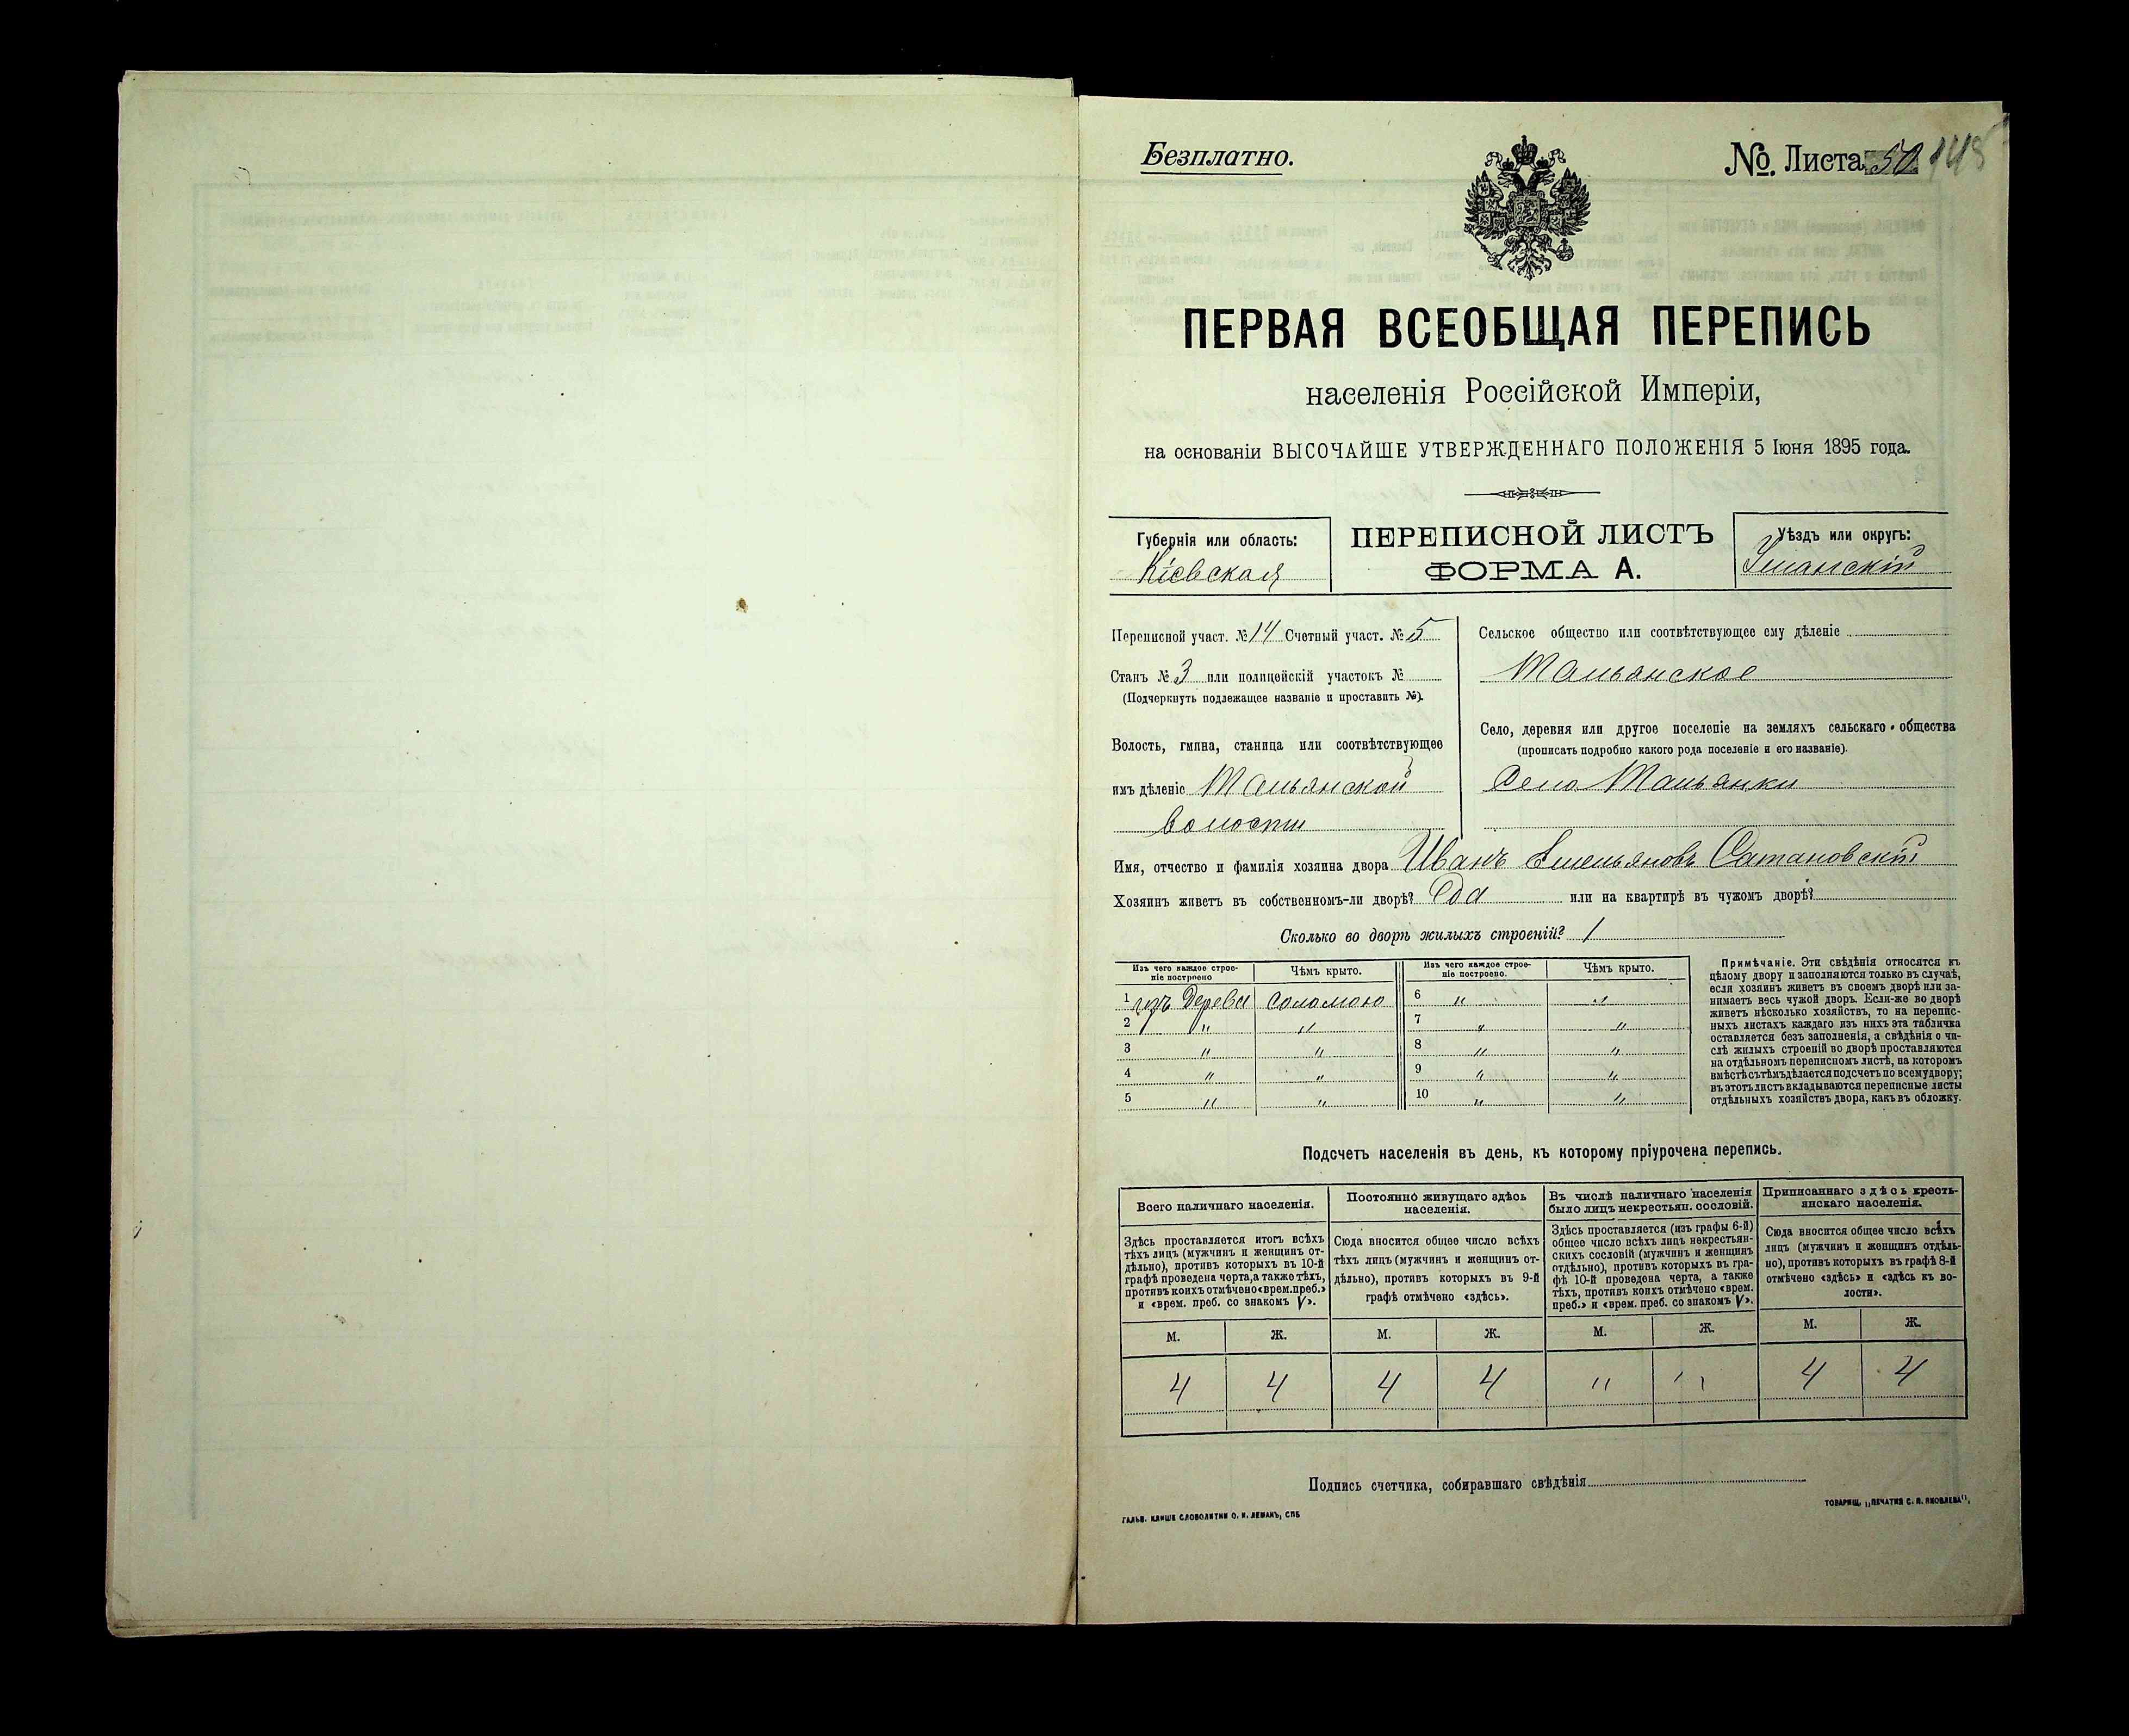 Безплатно.
№. Листа 50 148
ПЕРВАЯ ВСЕОБЩАЯ ПЕРЕПИСЬ
населенія Россійской Имперіи,
на основаніи ВЫСОЧАЙШЕ УТВЕРЖДЕННАГО ПОЛОЖЕНІЯ 5 Іюня 1895 года.
Губернія или область:
Кіевская
ПЕРЕПИСНОЙ ЛИСТЪ
ФОРМА А.
Уѣздъ или округъ:
Уманскій
Переписной участ. № 14 Счетный участ. № 5
Станъ № 3 или полицейскій участокъ №
(Подчеркнуть подлежащее названіе и проставить №).
Волость, гмина, станица или соотвѣтствующее
имъ дѣленіе Тальянской
волости
Сельское общество или соотвѣтствующее ему дѣленіе
Тальянское
Село, деревня или другое поселеніе на земляхъ сельскаго общества
(прописать подробно какого рода поселеніе и его названіе).
Село Тальянки
Имя, отчество и фамилія хозяина двора Иванъ Емельяновъ Сатановскій
Хозяинъ живетъ въ собственномъ-ли дворѣ? Да или на квартирѣ въ чужомъ дворѣ?
Сколько во дворѣ жилыхъ строеній? 1
Изъ чего каждое строе-
ніе построено
Чѣмъ крыто.
Изъ чего каждое строе-
ніе построено.
Чѣмъ крыто.
1 изъ Дерева соломою 6 " "
2 " " 7 " "
3 " " 8 " "
4 " " 9 " "
5 " " 10 " "
Примѣчаніе. Эти свѣдѣнія относятся къ
цѣлому двору и заполняются только въ случаѣ,
если хозяинъ живетъ въ своемъ дворѣ или за-
нимаетъ весь чужой дворъ. Если-же во дворѣ
живетъ нѣсколько хозяйствъ, то на перепис-
ныхъ листахъ каждаго изъ нихъ эта табличка
оставляется безъ заполненія, а свѣдѣнія о чи-
слѣ жилыхъ строеній во дворѣ проставляются
на отдѣльномъ переписномъ листѣ, на которомъ
вмѣстѣ съ тѣмъ дѣлается подсчетъ по всему двору;
въ этотъ листъ вкладываются переписные листы
отдѣльныхъ хозяйствъ двора, какъ въ обложку.
Подсчетъ населенія въ день, къ которому пріурочена перепись.
Всего наличнаго населенія.
Здѣсь проставляется итогъ всѣхъ
тѣхъ лицъ (мужчинъ и женщинъ от-
дѣльно), противъ которыхъ въ 10-й
графѣ проведена черта, а также тѣхъ,
противъ коихъ отмѣчено «врем. преб.»
и «врем. преб. со знакомъ V».
Постоянно живущаго здѣсь
населенія.
Сюда вносится общее число всѣхъ
тѣхъ лицъ (мужчинъ и женщинъ от-
дѣльно), противъ которыхъ въ 9-й
графѣ отмѣчено «здѣсь».
Въ числѣ наличнаго населенія
было лицъ некрестьян. сословій.
Здѣсь проставляется (изъ графы 6-й)
общее число всѣхъ лицъ некрестьян-
скихъ сословій (мужчинъ и женщинъ
отдѣльно), противъ которыхъ въ гра-
фѣ 10-й проведена черта, а также
тѣхъ, противъ коихъ отмѣчено «врем.
преб.» и «врем. преб. со знакомъ V».
Приписаннаго здѣсь кресть-
янскаго населенія.
Сюда вносится общее число всѣхъ
лицъ (мужчинъ и женщинъ отдѣль-
но), противъ которыхъ въ графѣ 8-й
отмѣчено «здѣсь» и «здѣсь къ во-
лости».
М. Ж. М. Ж. М. Ж. М. Ж.
4 4 4 4 " " 4 4
Подпись счетчика, собиравшаго свѣдѣнія
ГАЛЬВ. КЛИШЕ СЛОВОЛИТНИ О. И. ЛЕМАНЪ, СПБ
ТОВАРИЩ. „ПЕЧАТНЯ С. П. ЯКОВЛЕВА",